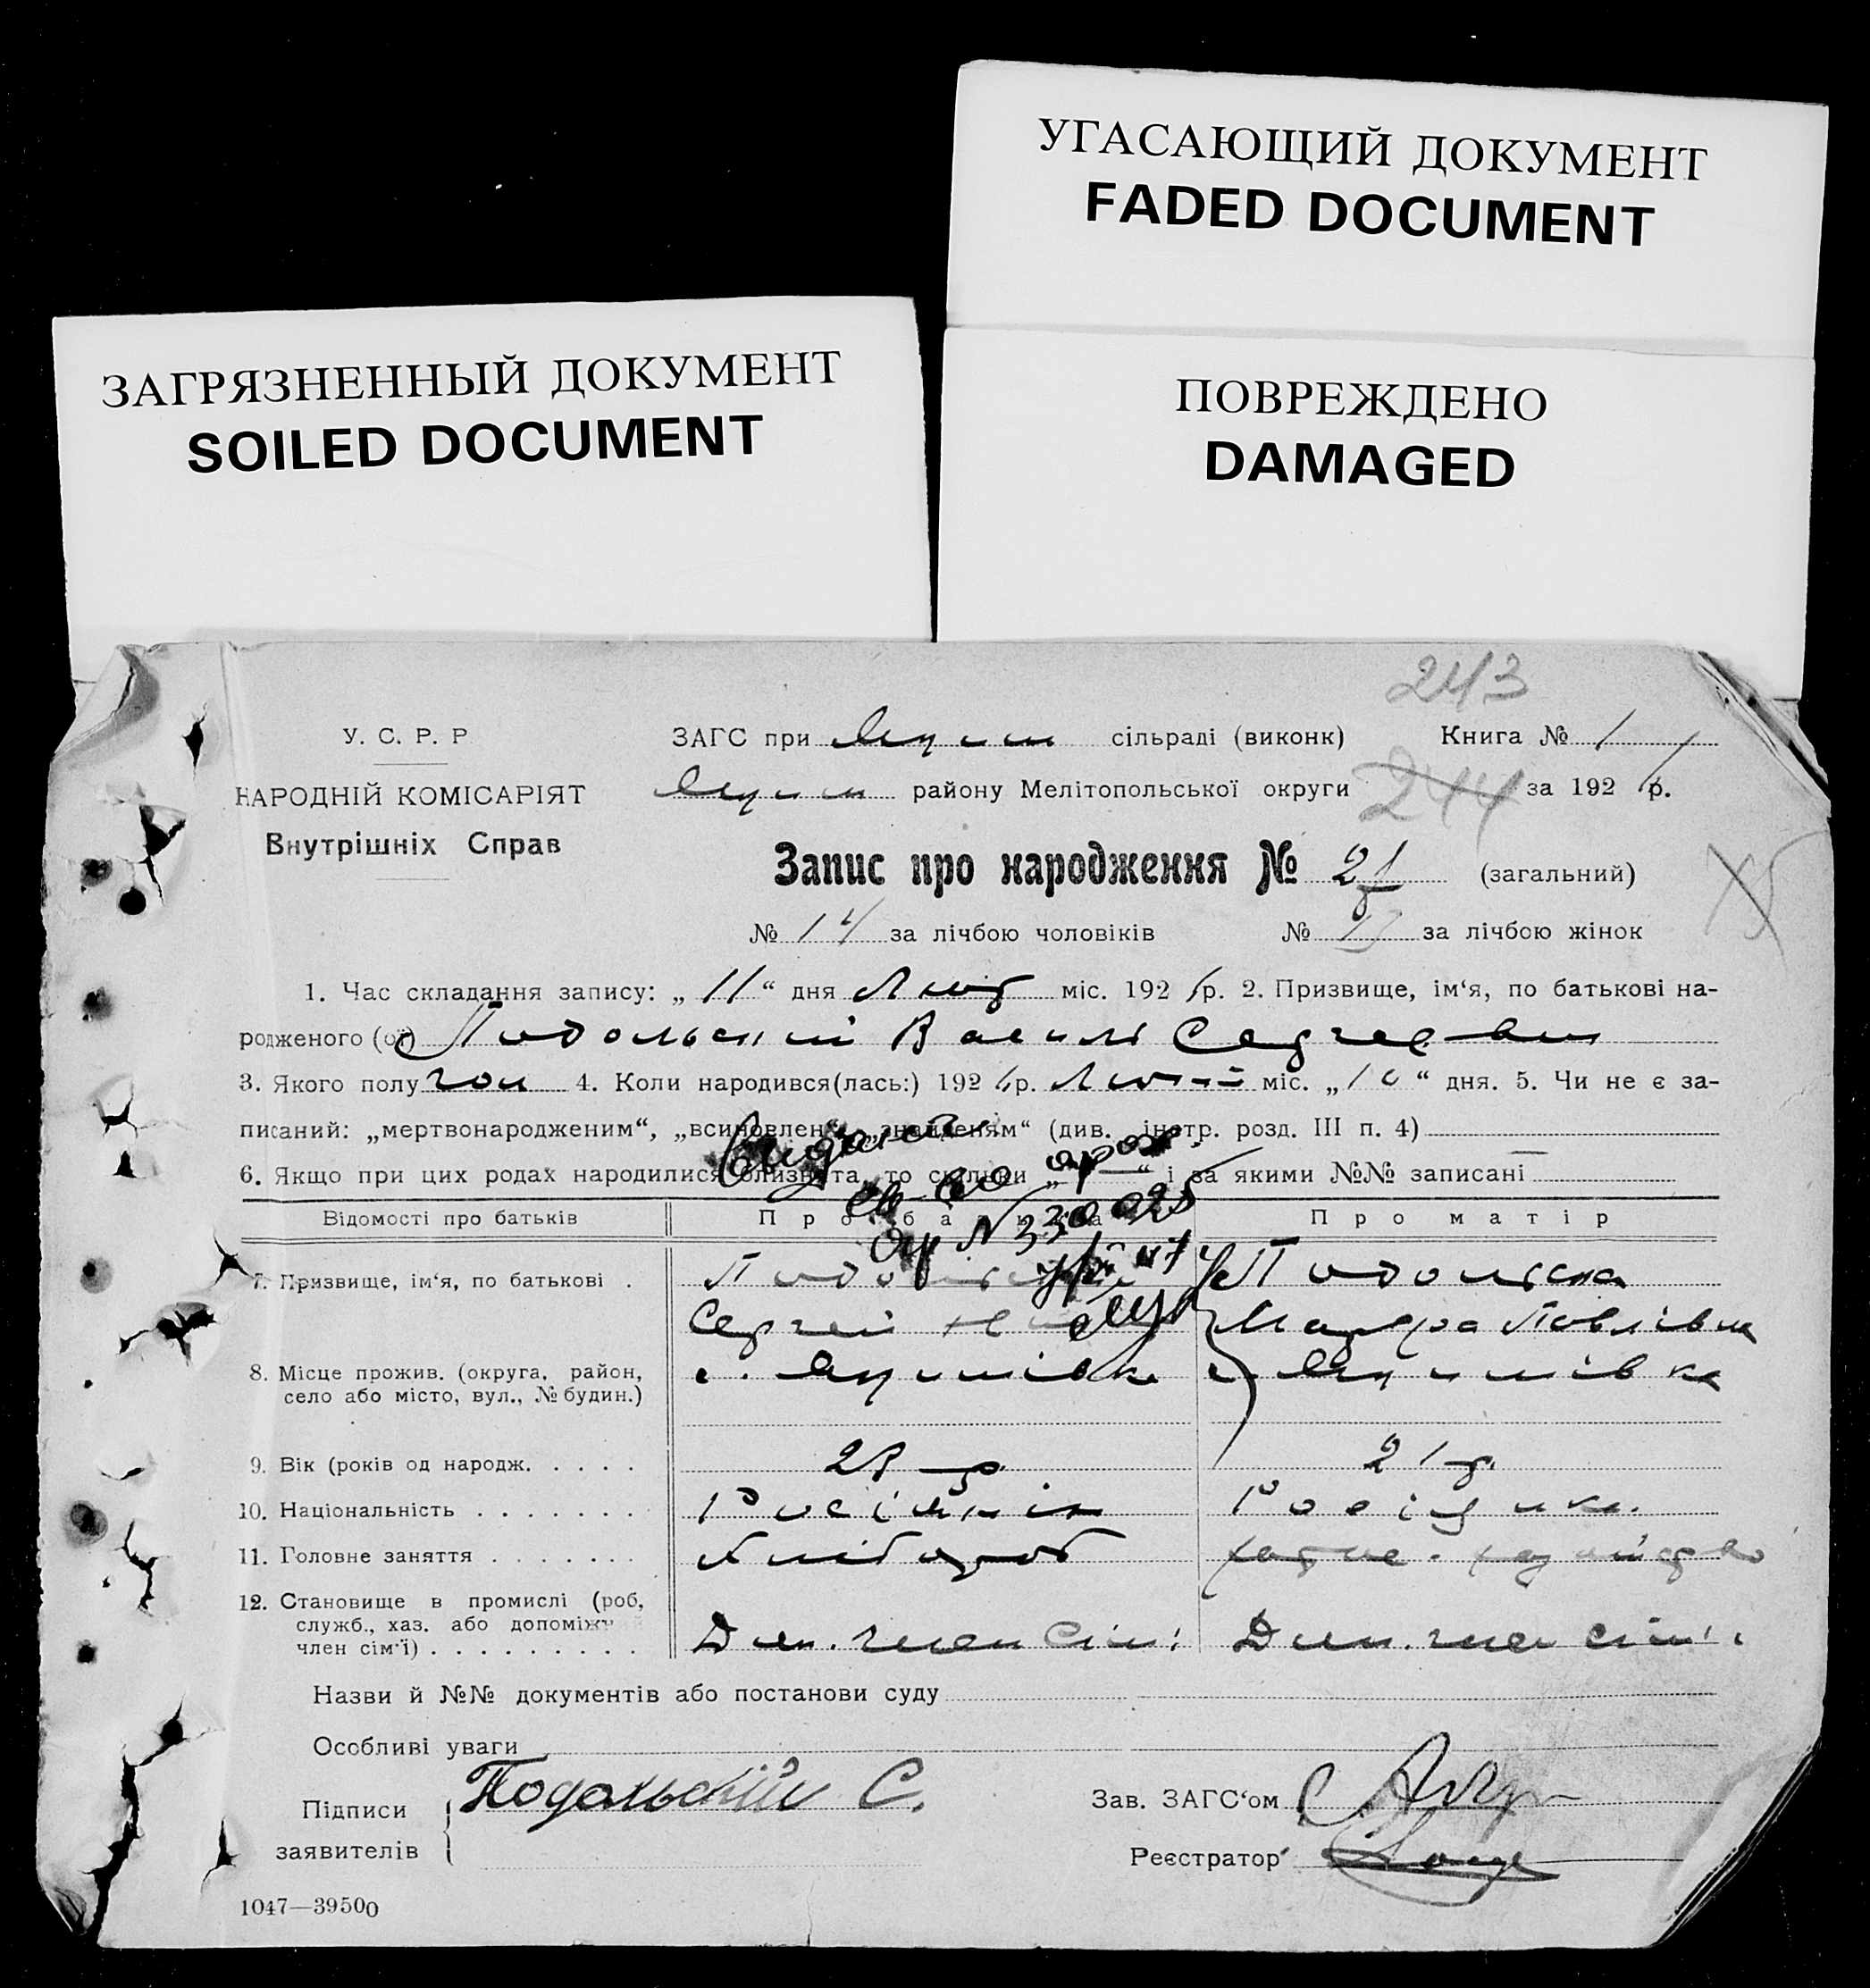 УГАСАЮЩИЙ ДОКУМЕНТ
FADED DOCUMENT
ЗАГРЯЗНЕННЫЙ ДОКУМЕНТ
SOILED DOCUMENT
ПОВРЕЖДЕНО
DAMAGED
243
У. С. Р. Р
ЗАГС при сільраді (виконк) Книга № 1
НАРОДНІЙ КОМІСАРІЯТ
району Мелітопольської округи 244 за 192 р.
Внутрішніх Справ
Запис про народження № 21 (загальний)
№ 14 за лічбою чоловіків № за лічбою жінок
1. Час складання запису: „ 11 “ дня Лют міс. 192 р. 2. Призвище, ім‘я, по батькові на-
родженого (ої) Подольский Василь
3. Якого полу чол 4. Коли народився(лась:) 192 р. міс. „ 10 “ дня. 5. Чи не є за-
писаний: „мертвонародженим“, „всиновлен“, „знайденям“ (див. інстр. розд. III п. 4)
6. Якщо при цих родах народилися близнята, то скільки „ — “ і за якими №№ записані —
Відомості про батьків
Про батька
Про матір
7. Призвище, ім‘я, по батькові . Подольська
Сергей Павлівна
8. Місце прожив. (округа, район, с. Якимівка с. Якимівка
село або місто, вул., № будин.)
9. Вік (років од народж. . . . . 28 р. 21 р.
10. Національність . . . . . . . Росіянін Росіянка
11. Головне заняття . . . . . . . Хлібороб
12. Становище в промислі (роб,
служб., хаз. або допоміжн
член сім‘ї) . . . . . . . . . Доп. член сім'ї Доп. член сім'ї
Назви й №№ документів або постанови суду
Особливі уваги
Підписи Подольский С. Зав. ЗАГС‘ом
заявителів Реєстратор
1047—39500